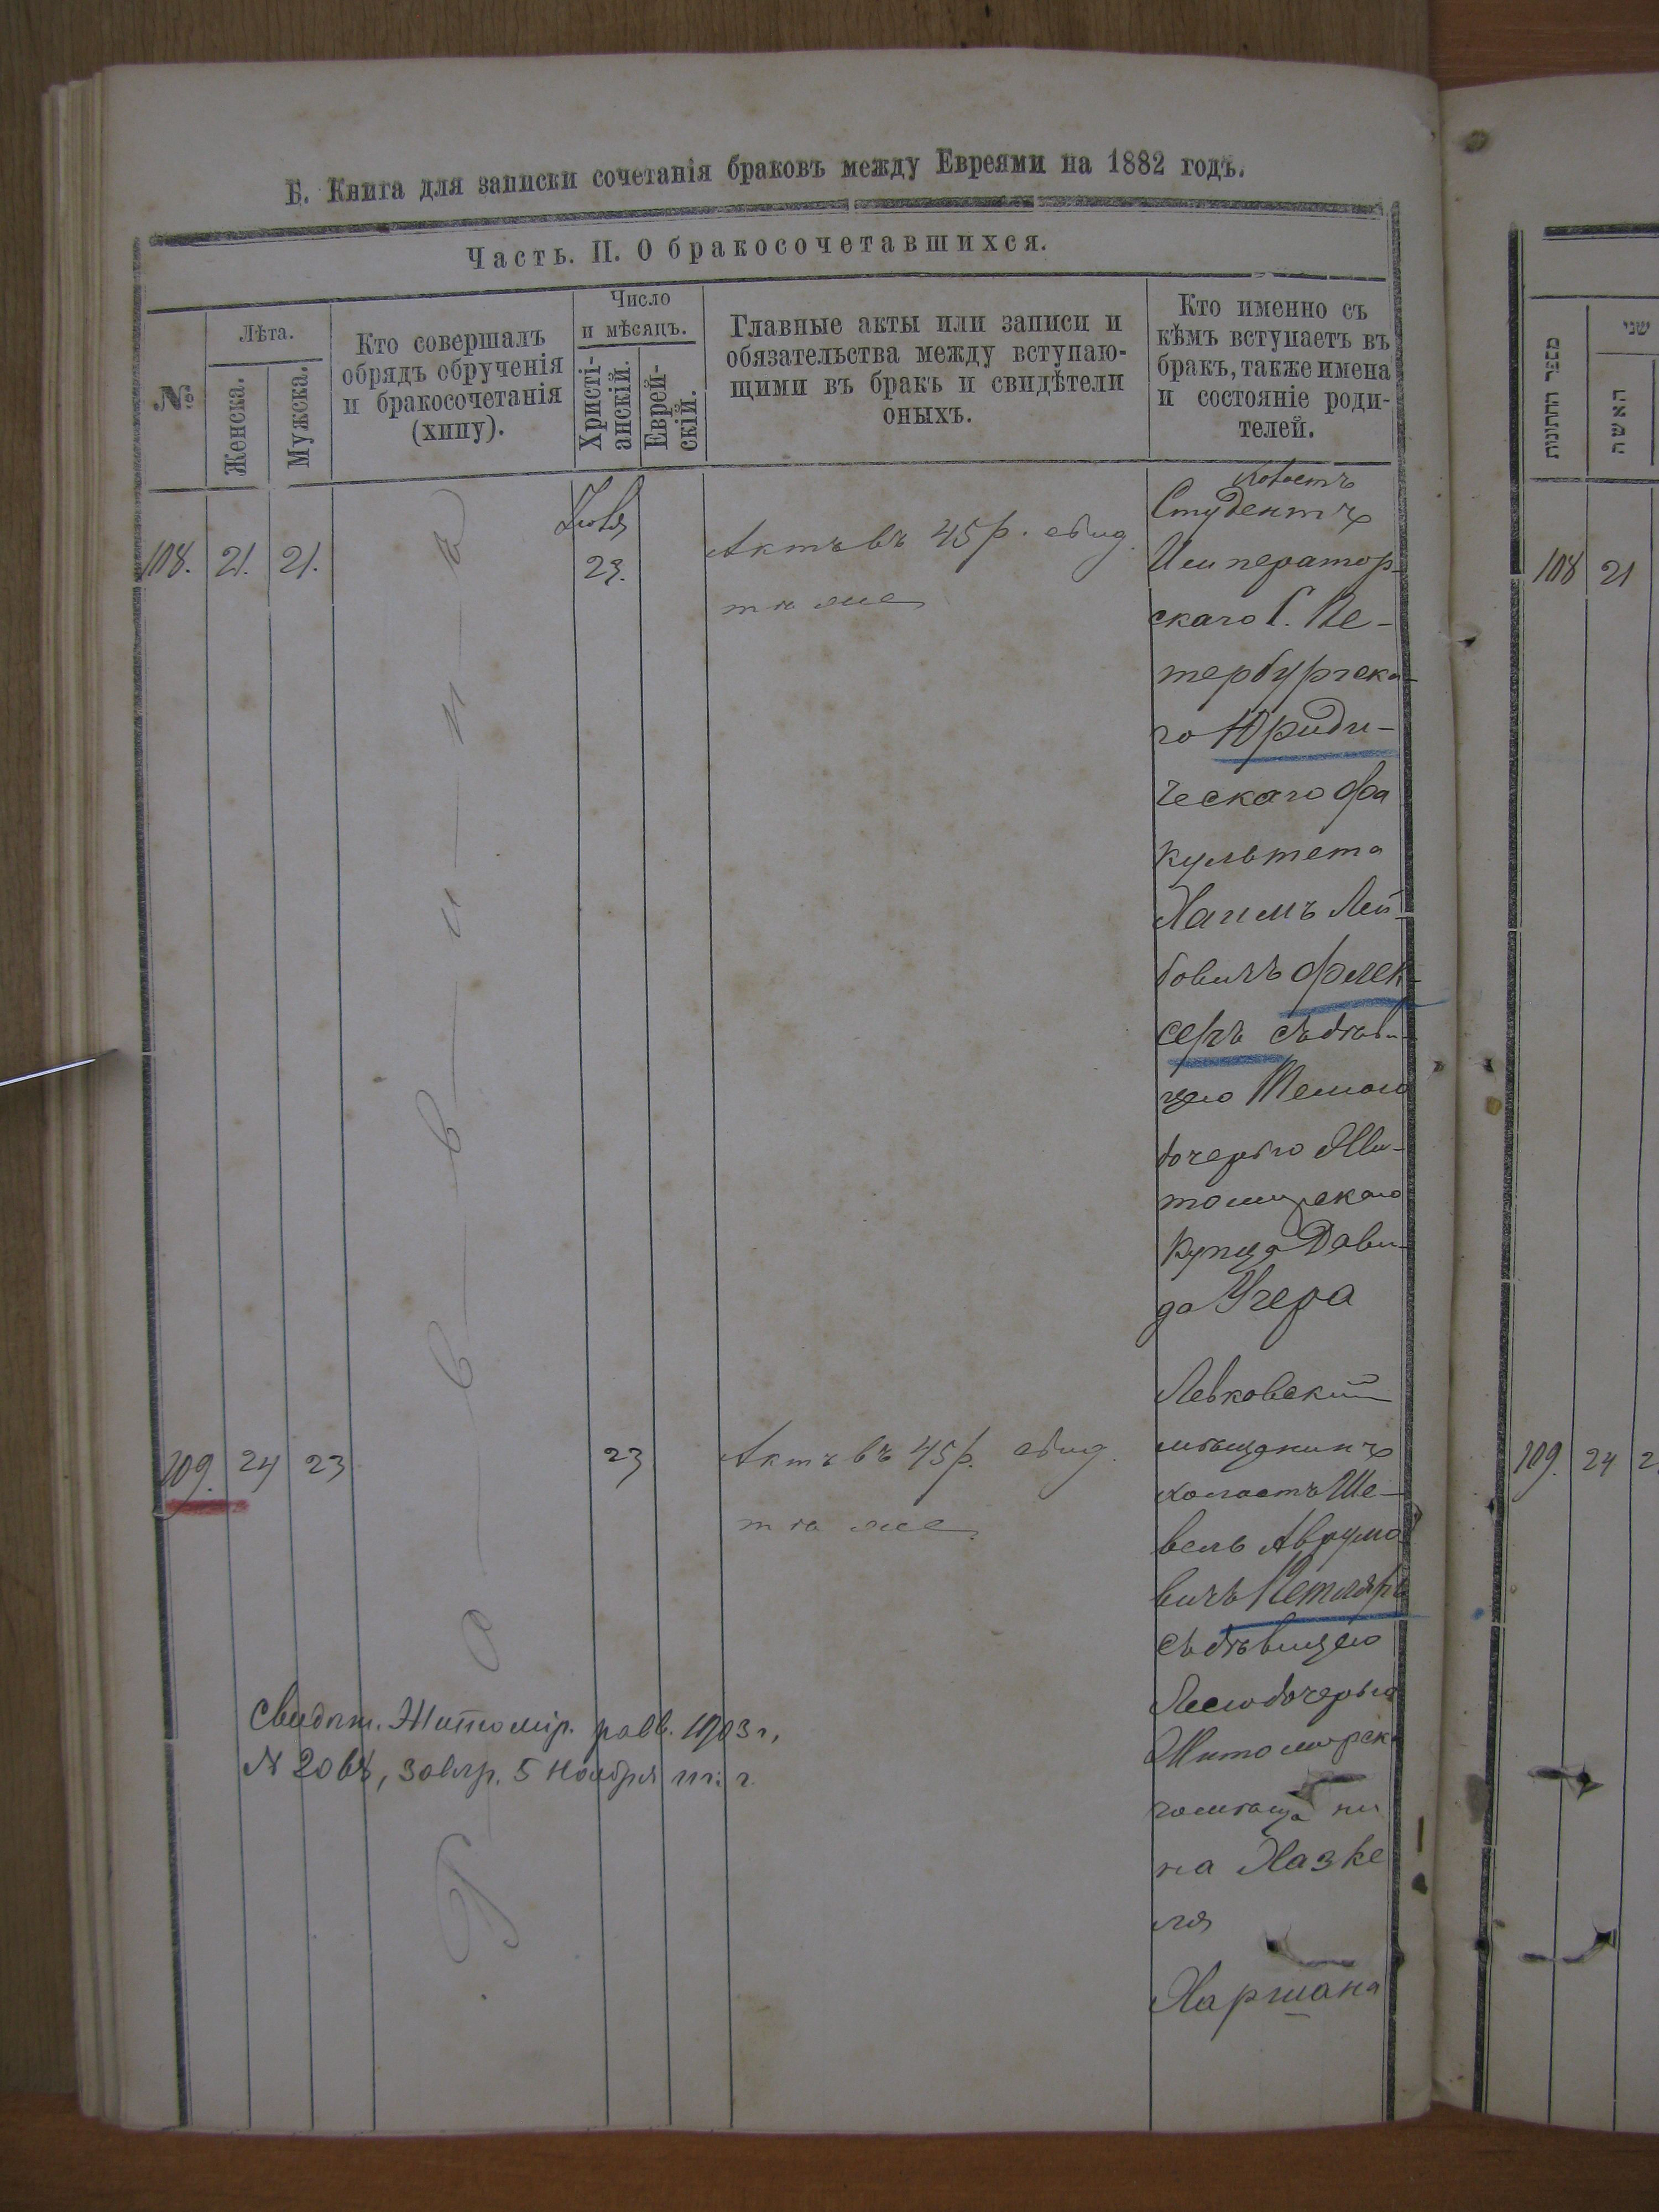 Б. Книга для записки сочетанія браковъ между Евреями на 1882 годъ.
Часть. II. О бракосочетавшихся.
№
Лѣта.
Женска.
Мужска.
Кто совершалъ
обрядъ обрученія
и бракосочетанія
(хипу).
Число
и мѣсяцъ.
Христі-
анскій.
Еврей-
скій.
Главные акты или записи и
обязательства между вступаю-
щими въ бракъ и свидѣтели
оныхъ.
Кто именно съ
кѣмъ вступаетъ въ
бракъ, также имена
и состояніе роди-
телей.
108.
21.
21.
23.
Актъ въ 45 р. свид.
тѣ же
Студентъ
Император-
скаго С. Пе-
тербургска-
го Юриди-
ческаго фа
культета
Хаимъ Лей-
бовичъ Флек-
серъ съ дѣви-
цею
дочерью Жи-
томирскаго
купца Дави-
да Учера
109.
24
23
23
Актъ въ 45 р. свид.
тѣ же
Левковский
мѣщанинъ
холостъ Ше-
вель Аврумо
вичъ Петляръ
съ дѣвицею
дочерью
Житомирска
го мѣща ни
на Хазке
ля
Харшана
Свидѣт. Житомір. равв. 1903 г.,
5 Ноября т. г.
מספר החתונות
שני
האשה
108
21
109.
24
2